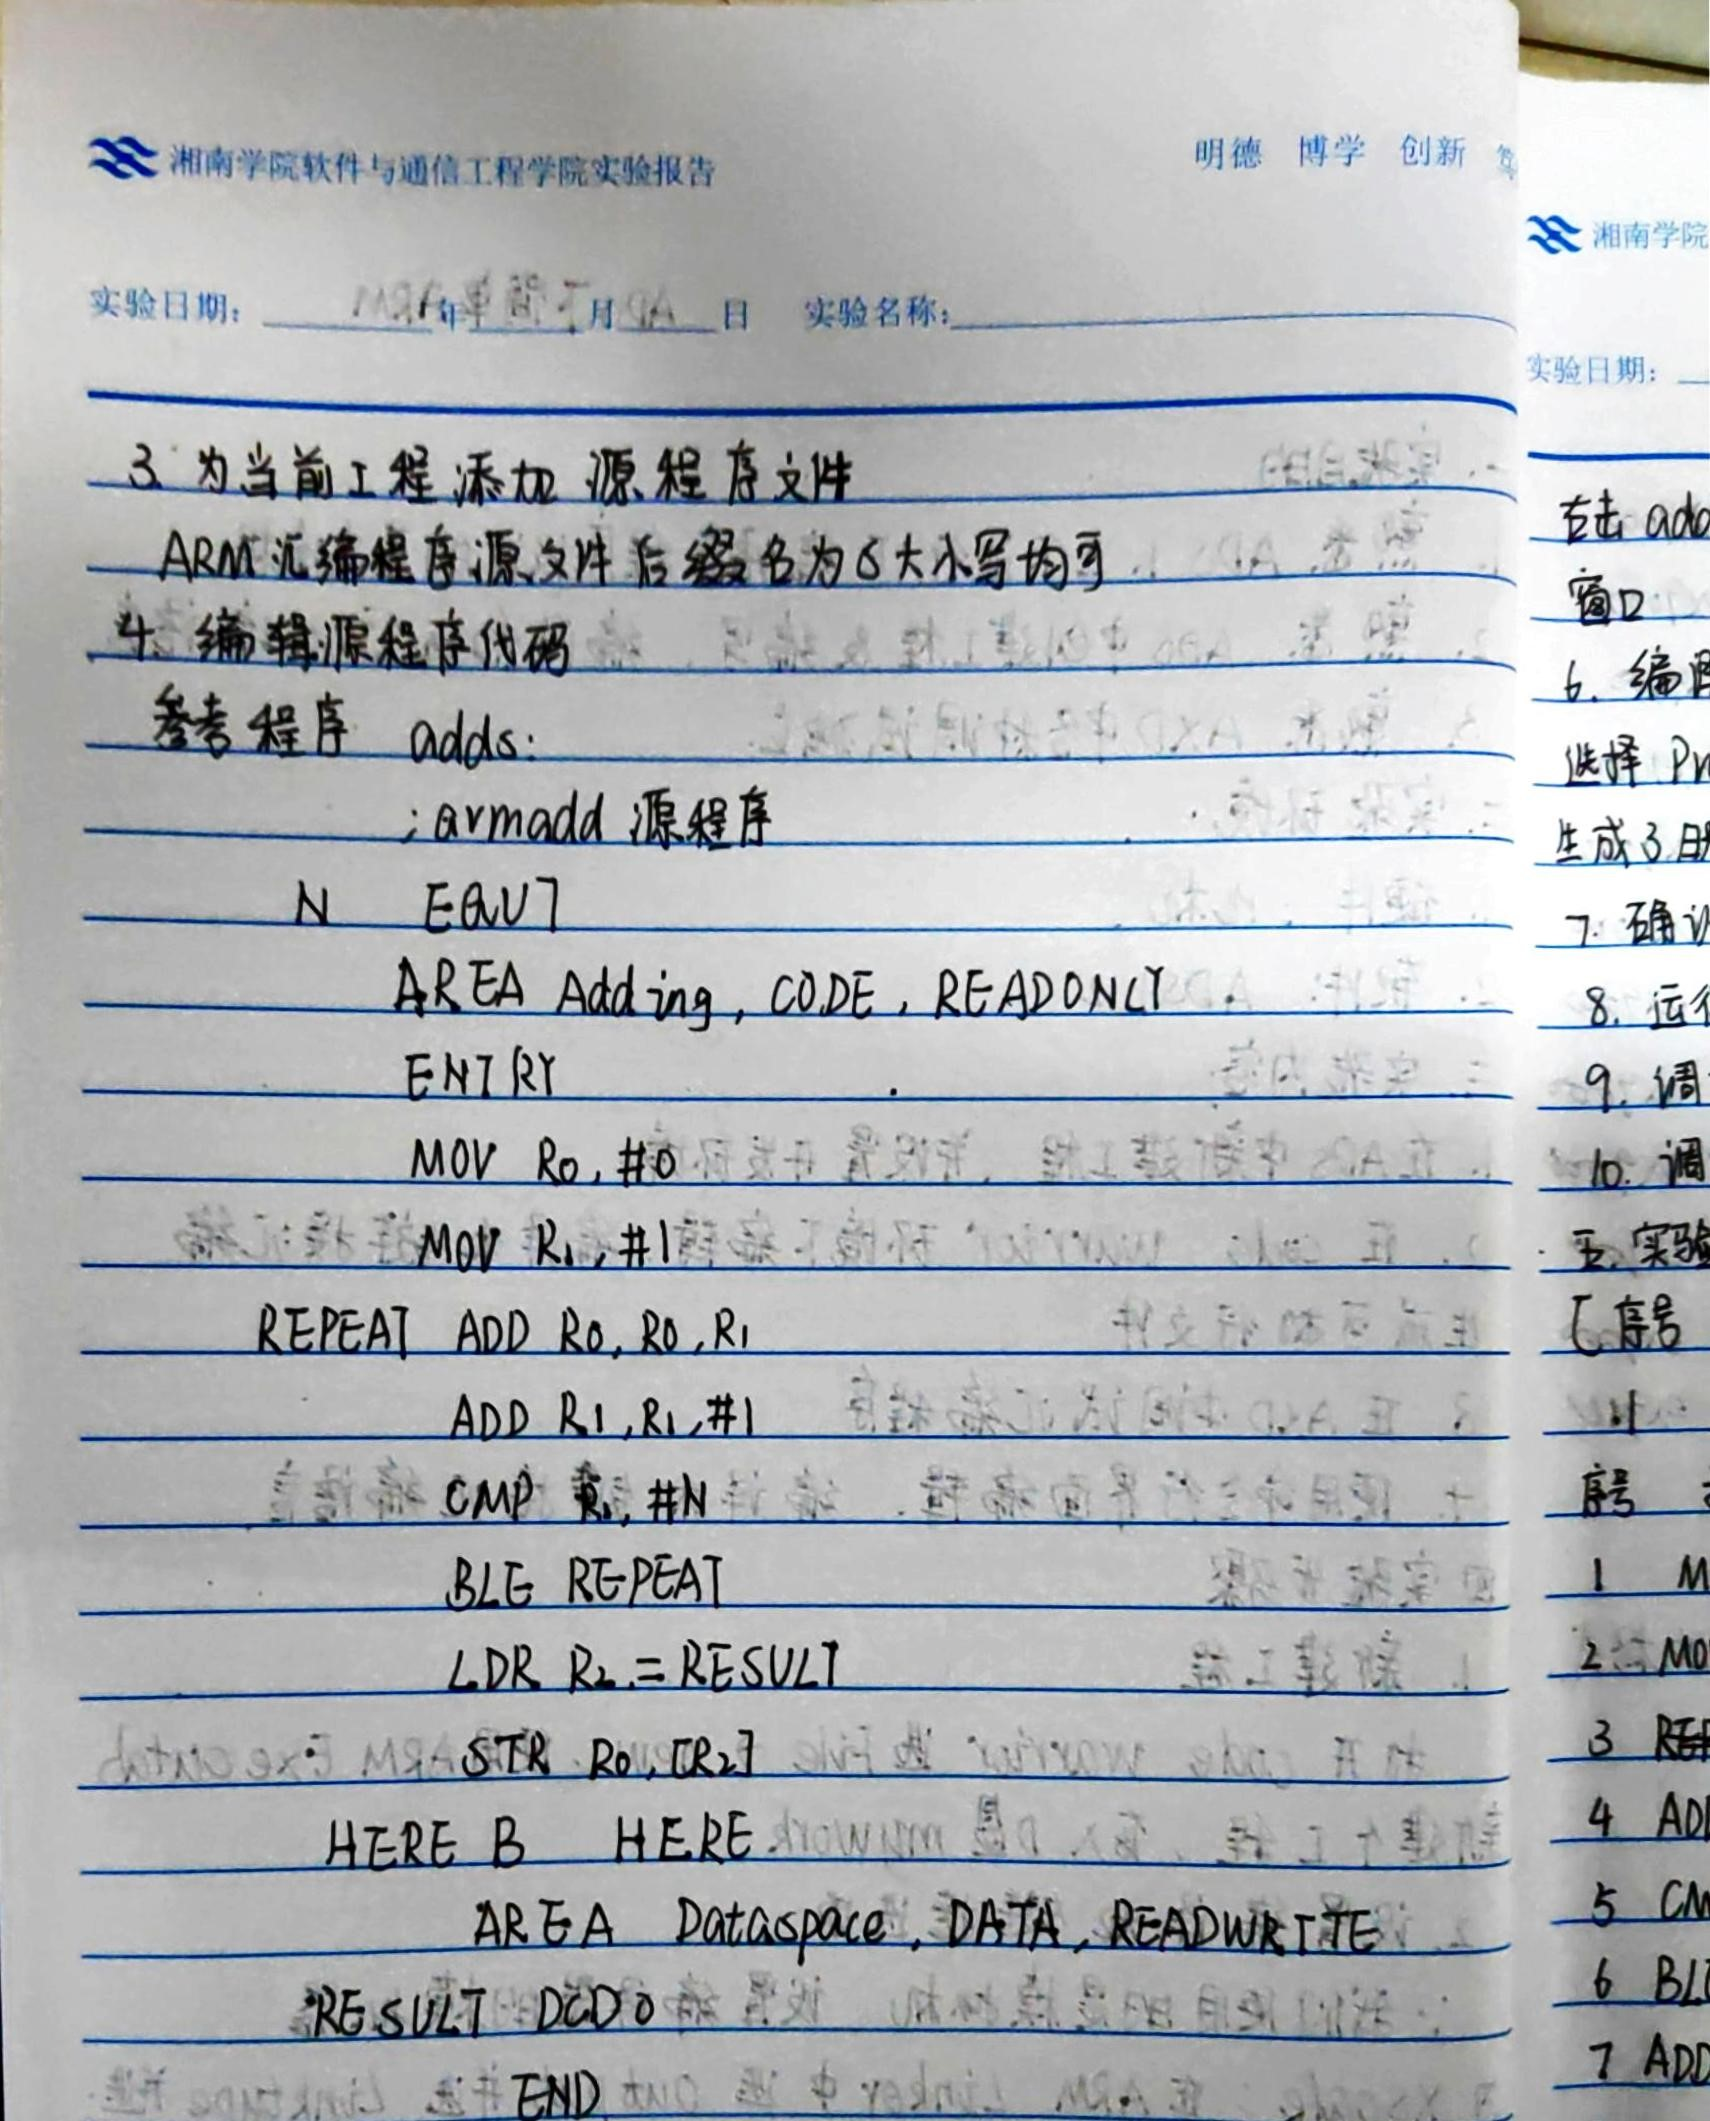 湘南学院软件与通信工程学院实验报告
明德 博学 创新
实验日期: 年 月 日 实验名称:
3. 为当前工程添加源程序文件
ARM汇编程序源文件后缀名为S大小写均可
4. 编辑源程序代码
参考程序 adds:
;armadd 源程序
N EQU7
AREA Adding, CODE, READONLY
ENTRY
MOV R0, #0
MOV R1, #1
REPEAT ADD R0, R0, R1
ADD R1, R1, #1
CMP R1, #N
BLE REPEAT
LDR R2, =RESULT
STR R0, [R2]
HERE B HERE
AREA Dataspace, DATA, READWRITE
RESULT DCD0
END
湘南学院
实验日期:
右击 add
窗口
6. 编
选择 Pr
生成3
7. 确认
8. 运行
9. 调
10. 调
五. 实验
[序号
序号
1 M
2 MO
3
4 ADD
5 CM
6 BLE
7 ADD